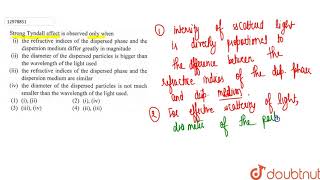 12978851
Strong Tyndall effect is observed only when
(i) the refractive indices of the dispersed phase and the
dispersion medium differ greatly in magnitude
(ii) the diameter of the dispersed particles is bigger than
the wavelength of the light used
(iii) the refractive indices of the dispersed phase and the
dispersion medium are similar
(iv) the diameter of the dispersed particles is not much
smaller than the wavelength of the light used.
(1) (i), (ii) (2) (i), (iv)
(3) (iii), (iv) (4) (ii), (iii)
① Intensity of scattered light
is directly proportional to
the difference between the
refractive indices of the disp. phase
and disp. medium.
② For effective scattering of light,
diameter of the part
doubtnut